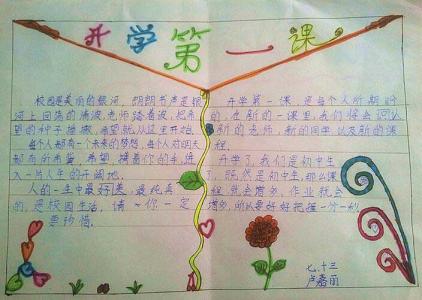 开学第一课
校园是美丽的银河，朗朗书声是银
河上回荡的清波，老师踏着波，把希
望的种子播撒，希望就从这里开始。
每个人都有一个未来的梦想，每个人对明天
都有所希望，希望，横着你的手，进
入一片人生的开阔地。
人的一生中最好、最纯真
的，是校园生活，请你一定
要珍惜。
开学第一课，是每个人所期盼
的，在新的一课里，我们将会
新的老师，新的同学，以及新的课
程。
开学了，我们是初中生
了，既然是初中生，那么课
程就会增多，作业就会
增多，所以要好好把握每一刻。
七.十三
卢嘉丽